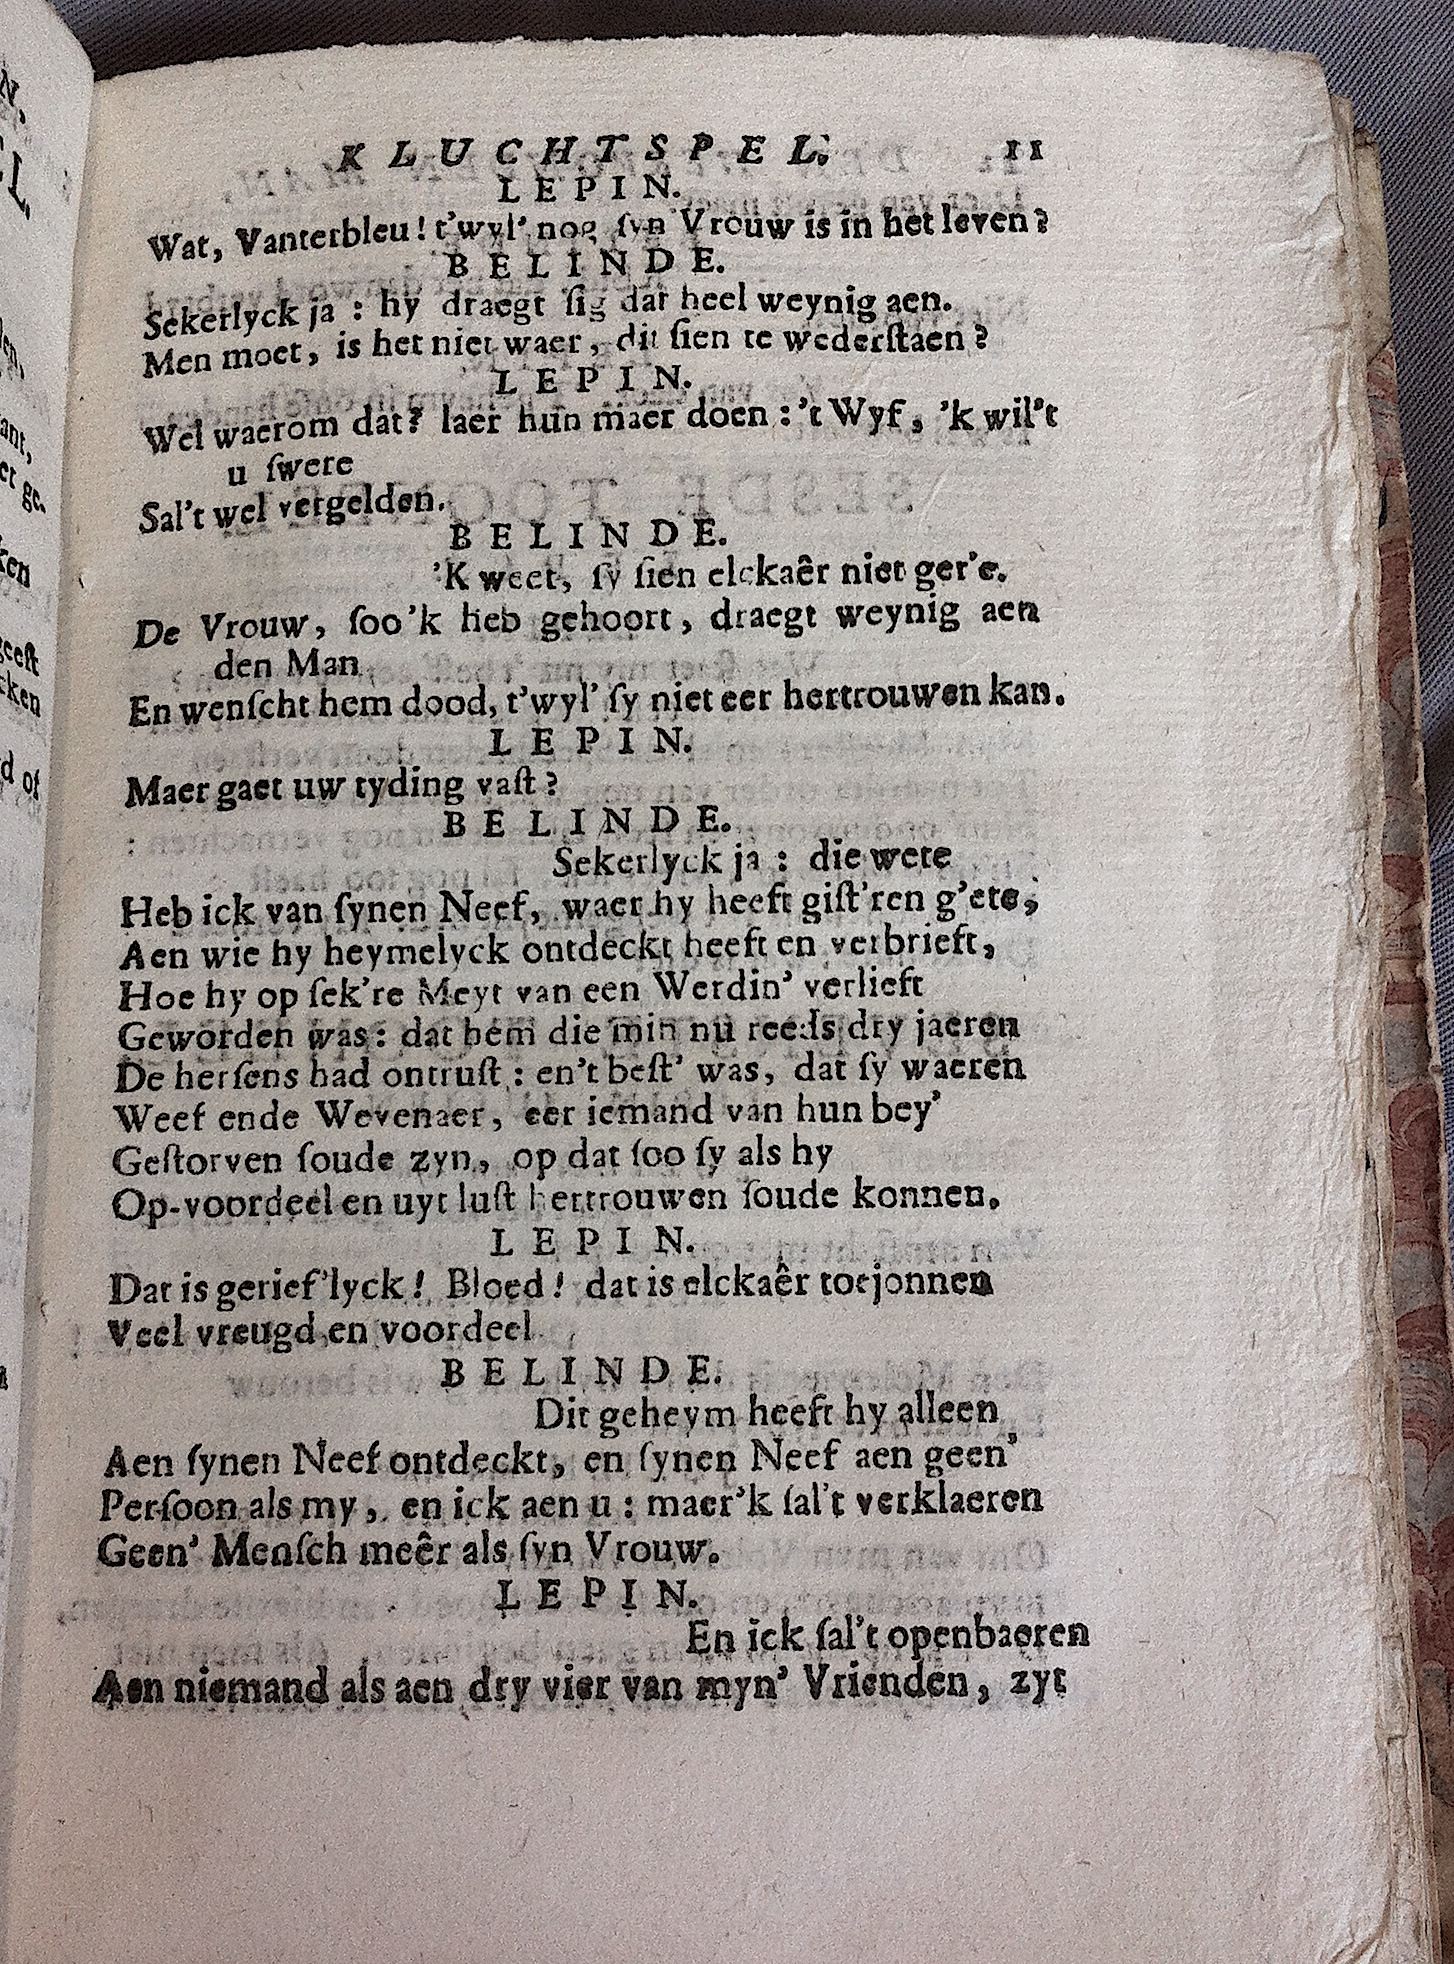 KLUCHTSPEL. 11
LEPIN.
Wat, Vanterbleu! t'wyl' nog ſyn Vrouw is in het leven?
BELINDE.
Sekerlyck ja : hy draegt ſig dat heel weynig aen.
Men moet, is het niet waer, dit ſien te wederſtaen?
LEPIN.
Wel waerom dat? laet hun maer doen : 't Wyf, 'k wil't
u ſwere
Sal't wel vergelden.
BELINDE.
'K weet, ſy ſien elckaêr niet ger'e.
De Vrouw, ſoo'k heb gehoort, draegt weynig aen
den Man
En wenſcht hem dood, t'wyl' ſy niet eer hertrouwen kan.
LEPIN.
Maer gaet uw tyding vaſt?
BELINDE.
Sekerlyck ja : die wete
Heb ick van ſynen Neef, waer hy heeft giſt'ren g'ete;
Aen wie hy heymelyck ontdeckt heeft en verbrieft,
Hoe hy op ſek're Meyt van een Werdin' verlieft
Geworden was: dat hem die min nu reeds dry jaeren
De herſens had ontruſt : en't beſt' was, dat ſy waeren
Weef ende Wevenaer, eer iemand van hun bey'
Geſtorven ſoude zyn, op dat ſoo ſy als hy
Op-voordeel en uyt luſt hertrouwen ſoude konnen.
LEPIN.
Dat is gerief'lyck! Bloed! dat is elckaêr toejonnen
Veel vreugd en voordeel.
BELINDE.
Dit geheym heeft hy alleen
Aen ſynen Neef ontdeckt, en ſynen Neef aen geen'
Perſoon als my, en ick aen u : maer'k ſal't verklaeren
Geen' Menſch meêr als ſyn Vrouw.
LEPIN.
En ick ſal't openbaeren
Aen niemand als aen dry vier van myn' Vrienden, zyt